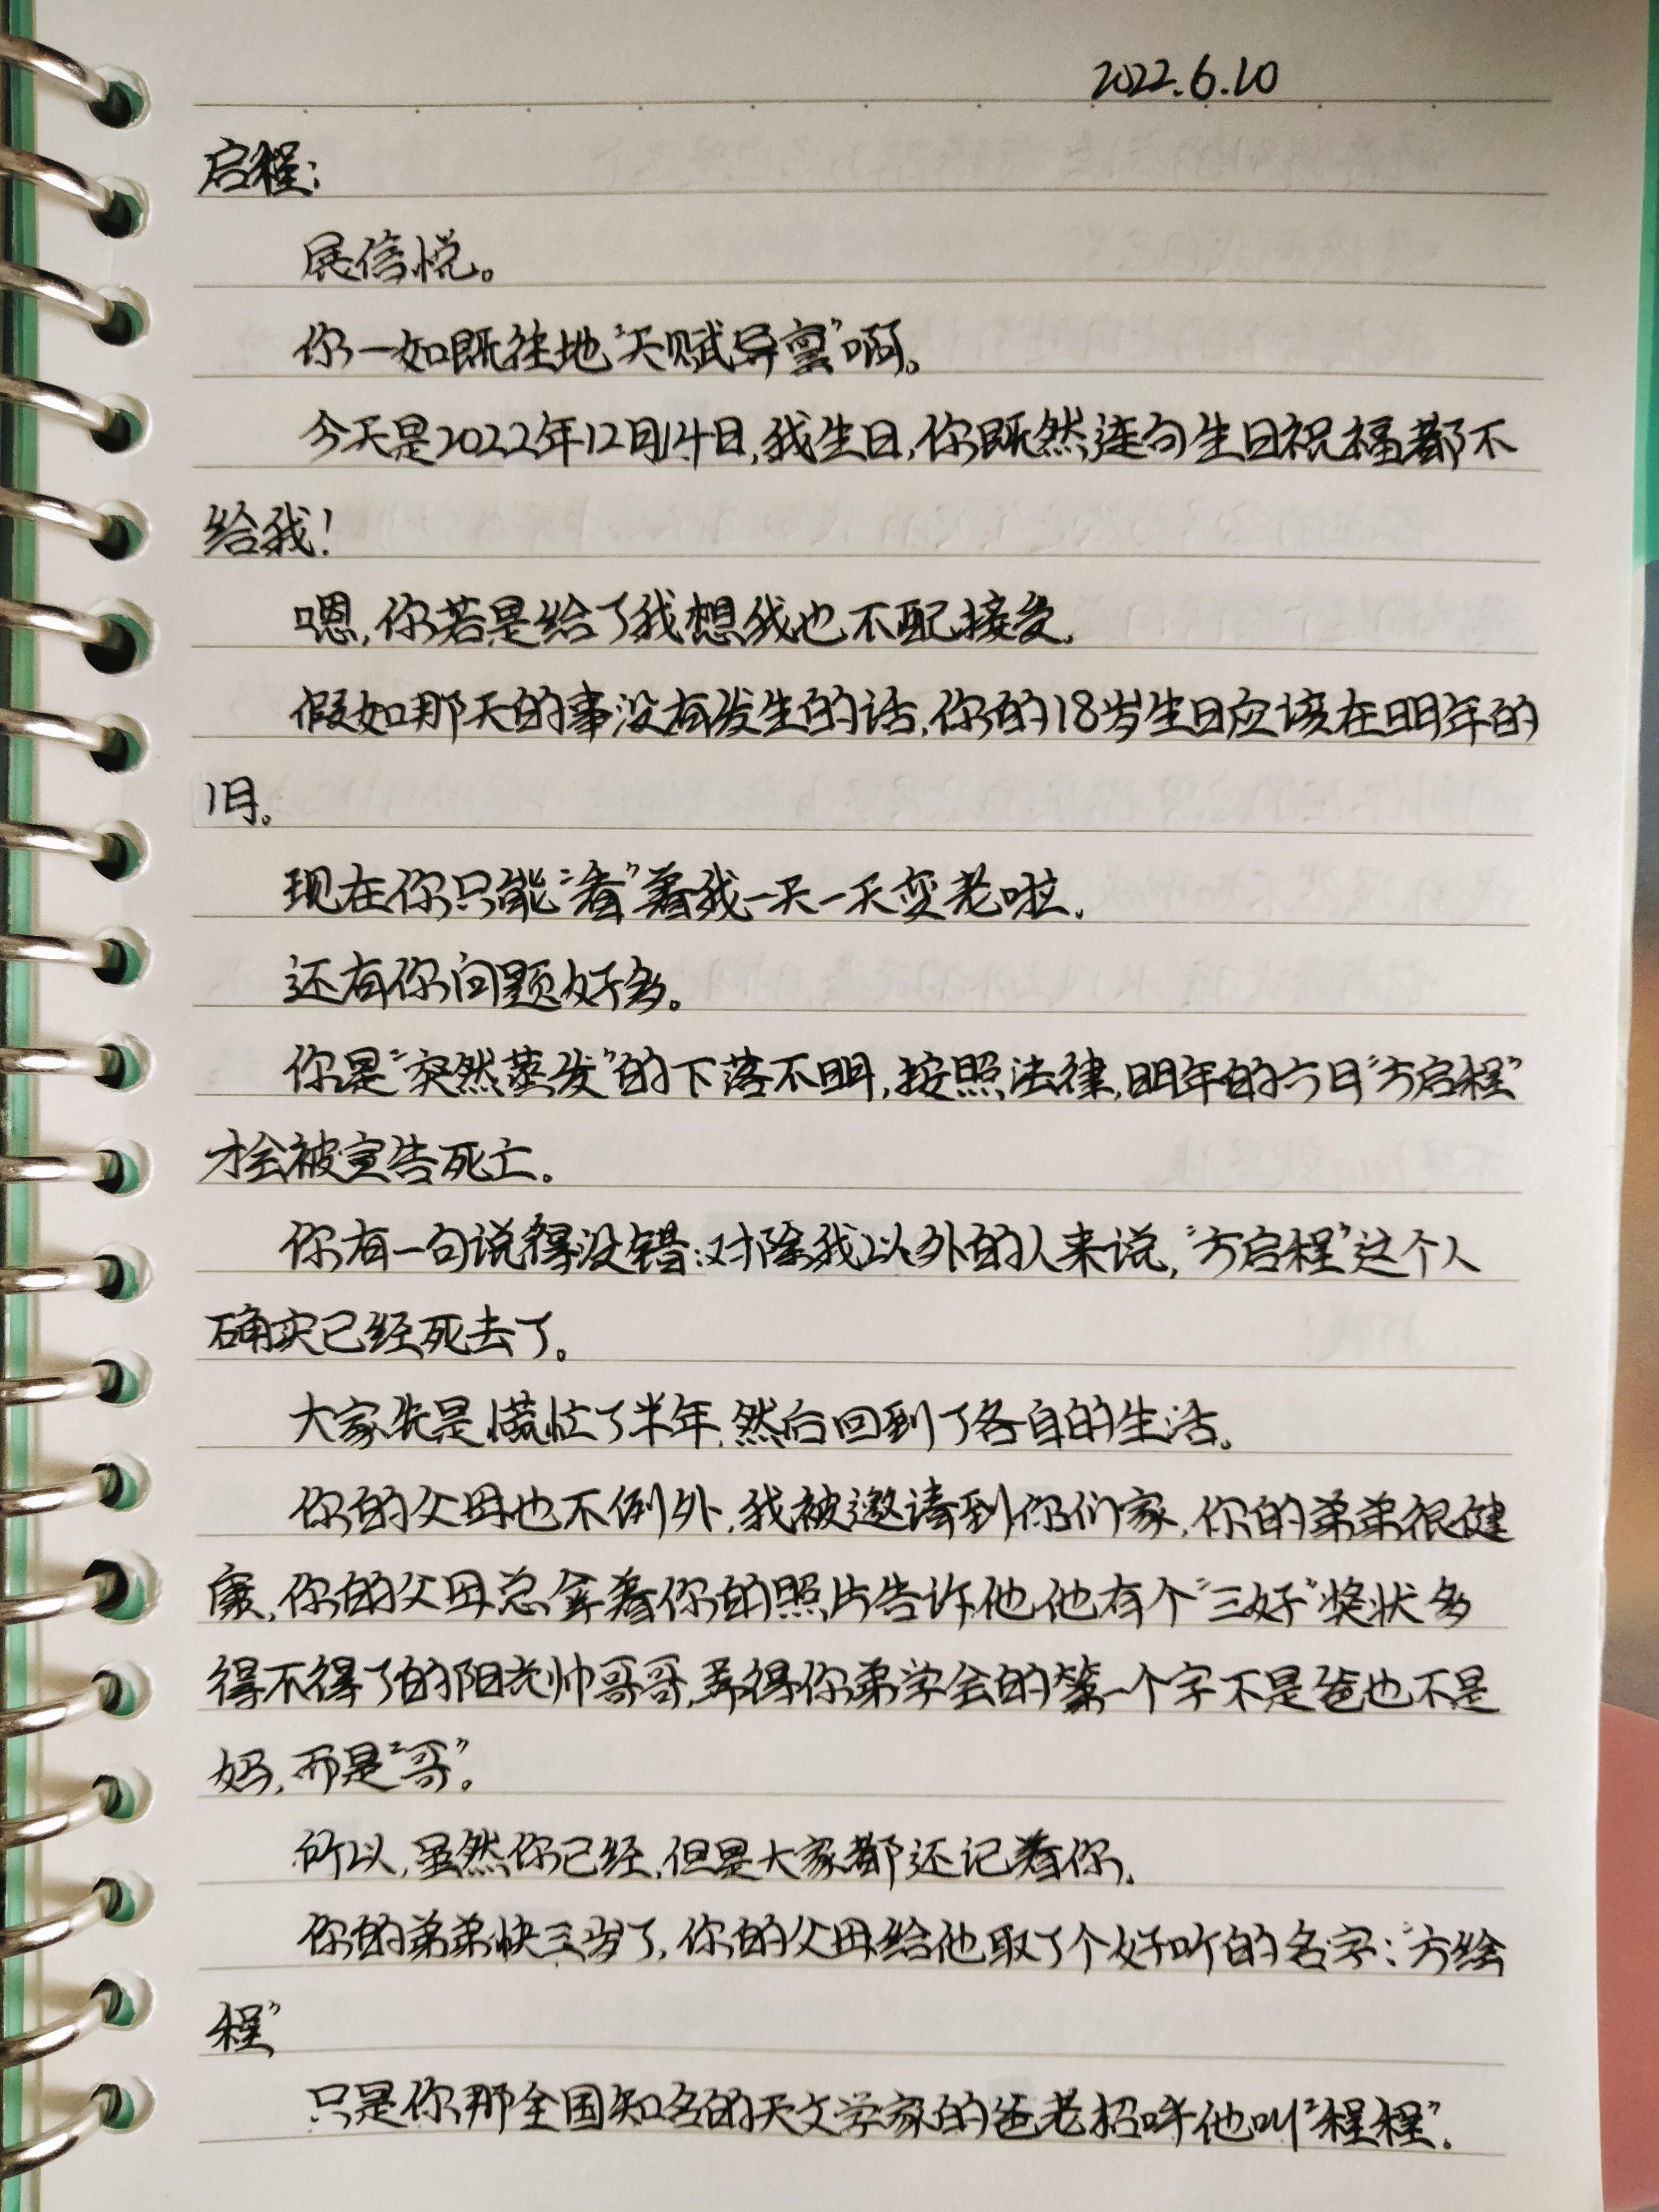 2022.6.20
启程:
展信悦。
你一如既往地“天赋异禀”啊。
今天是2022年12月14日,我生日,你既然连句生日祝福都不
给我!
嗯,你若是给了我想我也不配接受.
假如那天的事没有发生的话,你的18岁生日应该在明年的
1月。
现在你只能“看”着我一天一天变老啦.
还有你问题好多。
你是“突然蒸发”的下落不明,按照法律,明年的六月“方启程”
才会被宣告死亡。
你有一句说得没错:对除我以外的人来说,“方启程”这个人
确实已经死去了。
大家先是慌忙了半年,然后回到了各自的生活。
你的父母也不例外,我被邀请到你们家,你的弟弟很健
康,你的父母总拿着你的照片告诉他,他有个“三好”奖状多
得不得了的阳光帅哥哥,弄得你弟学会的第一个字不是爸也不是
妈,而是“哥”。
所以,虽然你已经,但是大家都还记着你.
你的弟弟快三岁了,你的父母给他取了个好听的名字:“方绘
程”
只是你那全国知名的天文学家的爸老招呼他叫“程程”.